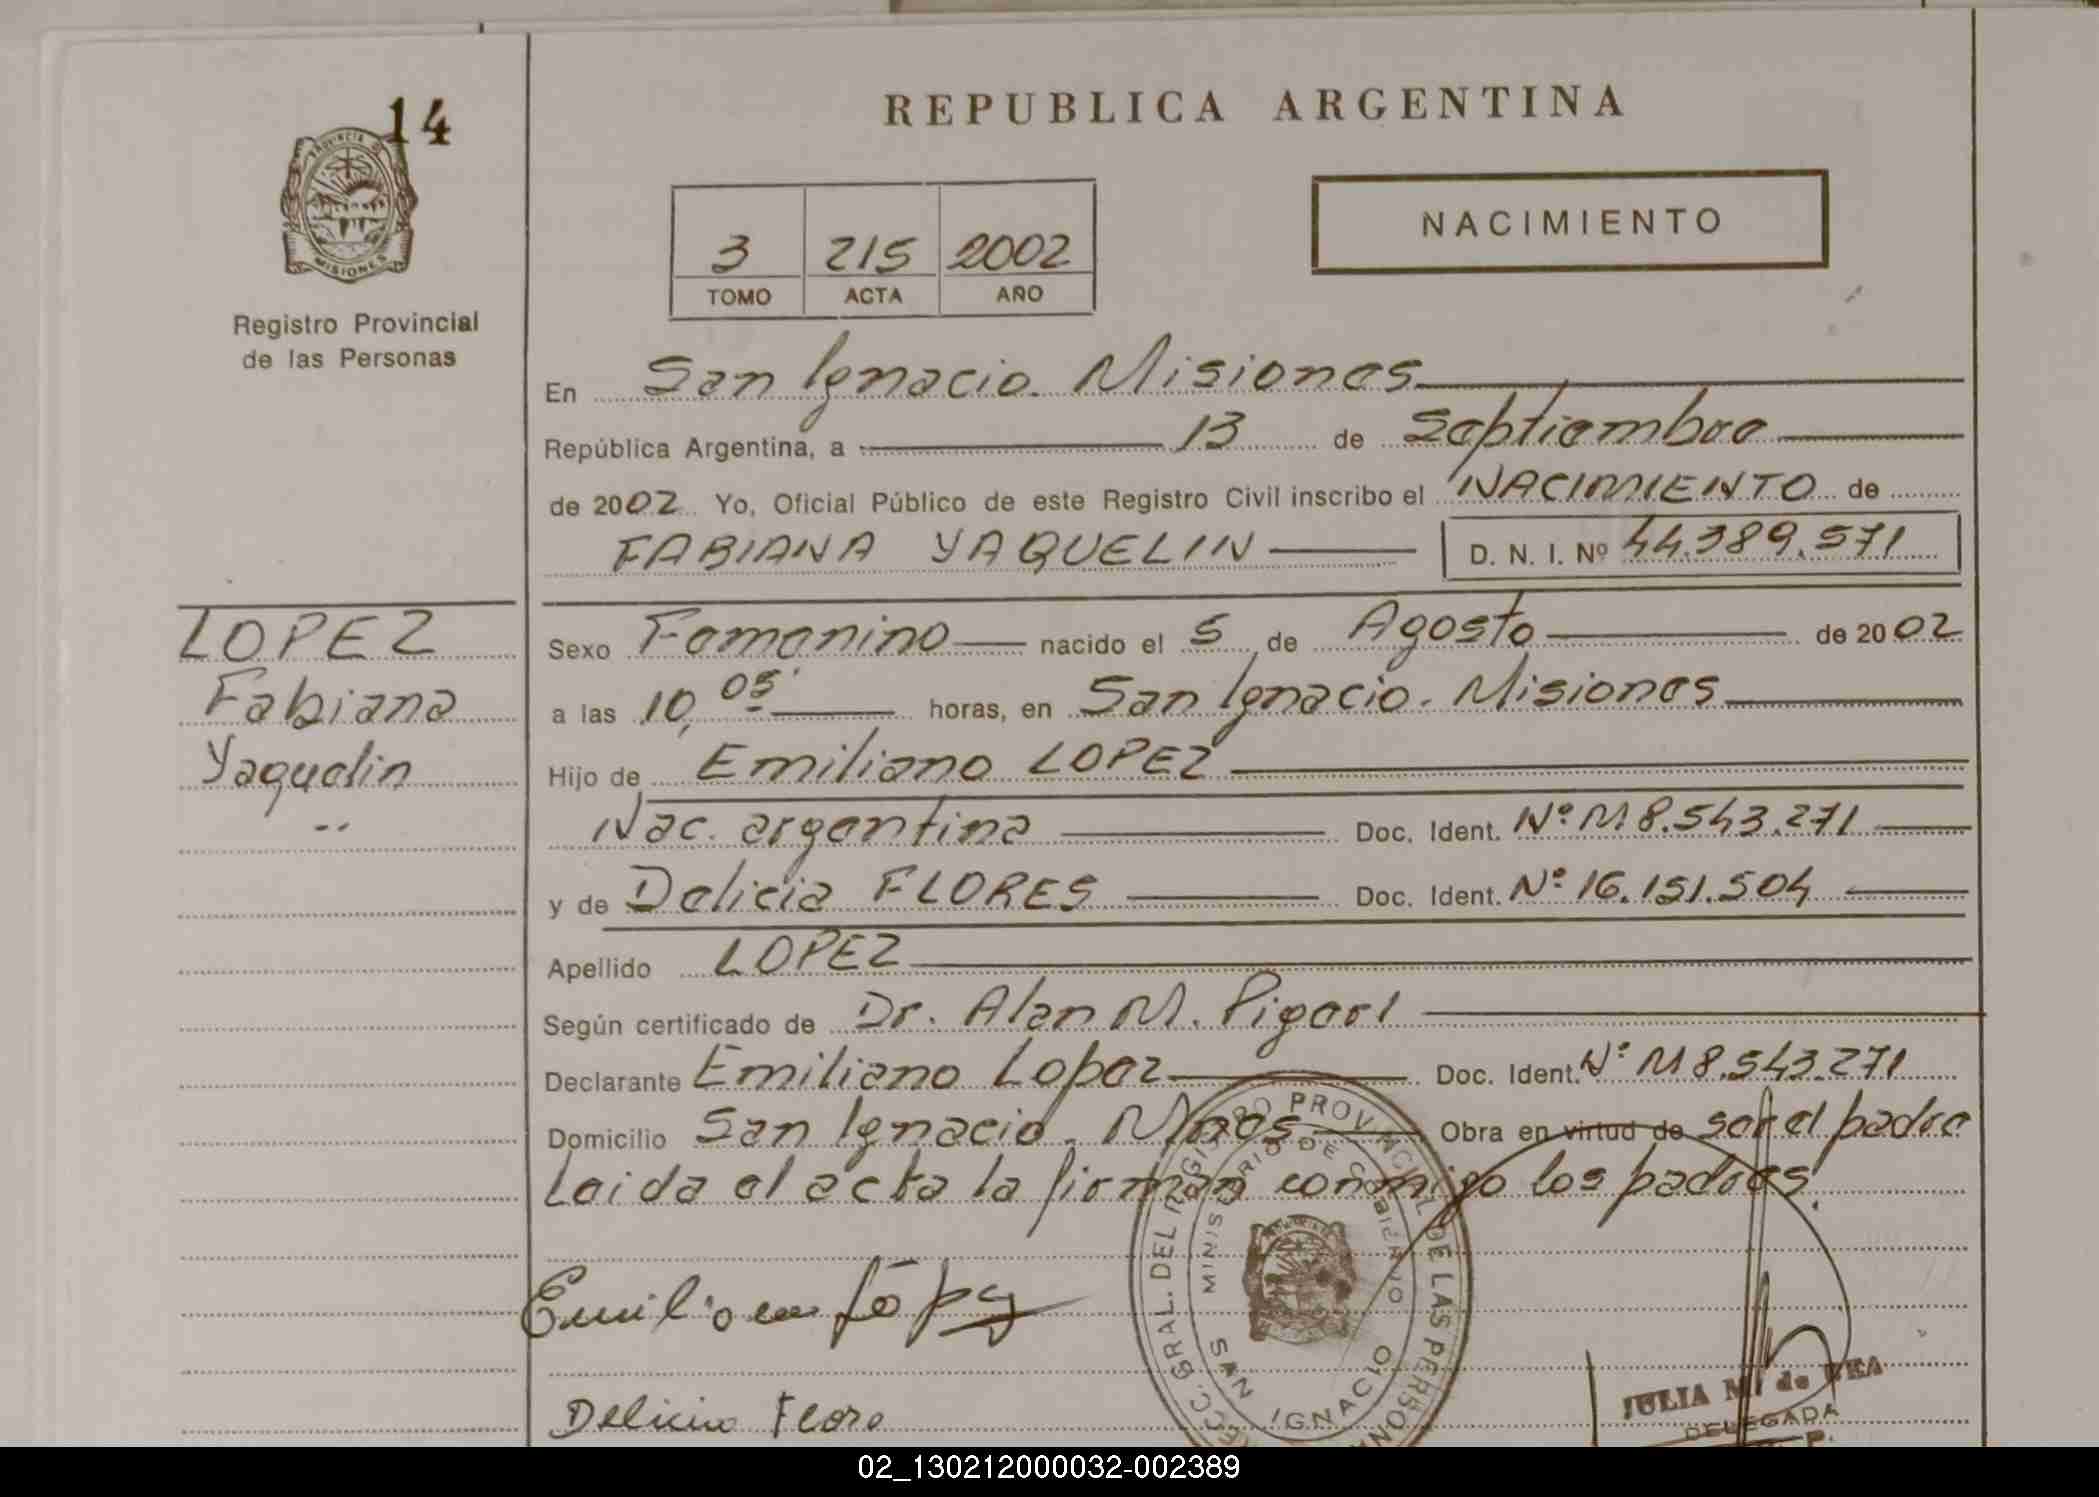 14
PROVINCIA DE
MISIONES
Registro Provincial
de las Personas
REPUBLICA ARGENTINA
3 215 2002
TOMO ACTA AÑO
NACIMIENTO
En San Ignacio. Misiones
República Argentina, a 13 de Septiembre
de 2002 Yo, Oficial Público de este Registro Civil inscribo el NACIMIENTO de
FABIANA YAQUELIN D. N. I. Nº 44.389.571
LOPEZ
Fabiana
Yaquelin
Sexo Femenino nacido el 5 de Agosto de 2002
a las 10,05 horas, en San Ignacio. Misiones
Hijo de Emiliano LOPEZ
Nac. argentina Doc. Ident. Nº M 8.543.271
y de Delicia FLORES Doc. Ident. Nº 16.151.504
Apellido LOPEZ
Según certificado de Dr. Alan M. Pigerl
Declarante Emiliano Lopez Doc. Ident. Nº M 8.543.271
Domicilio San Ignacio. Mnes Obra en virtud de ser el padre
Leida el acta la firman conmigo los padres.
Emiliano López
Delicia Flore
GRAL. DEL REGISTRO PROVINCIAL DE LAS PERSONAS
MINISTERIO DE GOBIERNO
SAN IGNACIO
JULIA M. de
DELEGADA
02_130212000032-002389